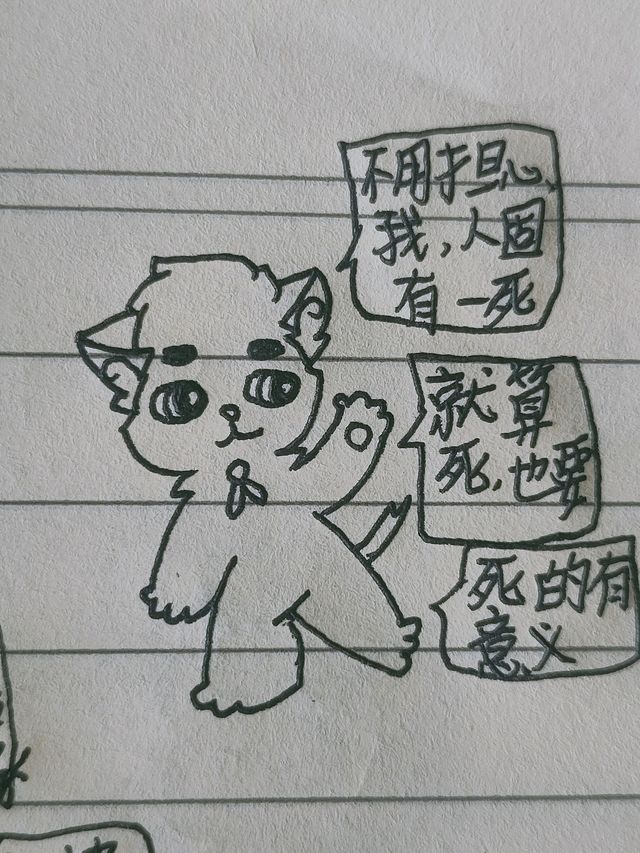 不用担心
我,人固
有一死
就算
死,也要
死的有
意义